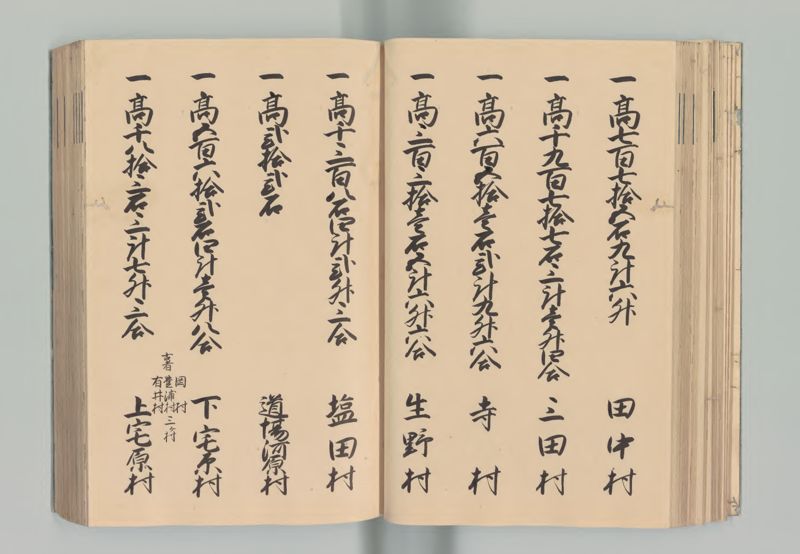 一高七百七拾五石九斗六升 田中村
一高千九百七拾七石三斗壱升四合 三田村
一高六百五拾壱石弐斗九升六合 寺村
一高三百三拾壱石五斗六升六合 生野村
一高千三百八石四斗弐升三合 塩田村
一高弐拾弐石 道場河原村
一高五百六拾弐石四斗壱升八合 下宅原村
古者 岡村 豊浦村 有井村 三ヶ村
一高千八拾三石三斗七升三合 上宅原村